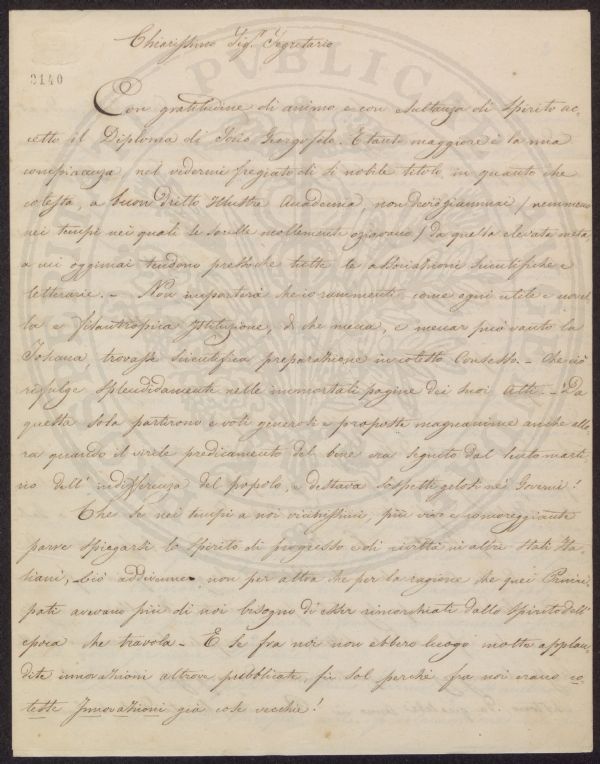 Chiarissimo Sig.r Segretario
2140
Con gratitudine di animo e con esultanza di spirito ac-
cetto il Diploma di Socio Georgofilo. E tanto maggiore è la mia
compiacenza nel vedermi fregiato di sì nobile titolo, in quanto che
cotesta, a buon dritto Illustre Accademia, non derogò giammai (nemmeno
nei tempi nei quali le sorelle mollemente oziavano) da quella elevata meta
a cui oggimai tendono pressochè tutte le associazioni scientifiche e
letterarie. - Non importerà che io rammenti, come ogni utile e novel
la e filantropica Istituzione, di che mena, e menar può vanto la
Toscana, trovasse scientifica preparazione in cotesto Consesso. - Che ciò
rifulge splendidamente nelle immortali pagine dei suoi Atti. - Da
questa sola partirono e voti generosi e proposte magnanime anche allo
ra quando il virile predicamento del bene era seguito dal lento marti
rio dell' indifferenza del popolo, e destava sospetti gelosi nei Governi!
Che se nei tempi a noi vicinissimi, più vivo e romoreggiante
parve spiegarsi lo spirito di progresso e di civiltà in altri Stati Ita
liani, ciò addivenne non per altro che per la ragione che quei Princi
pati avevano più di noi bisogno di esser rimorchiati dallo spirito dell'
epoca che travola. - E se fra noi non ebbero luogo molte applau-
dite innovazioni altrove pubblicate, fu sol perchè fra noi erano co-
teste Innovazioni già cose vecchie!